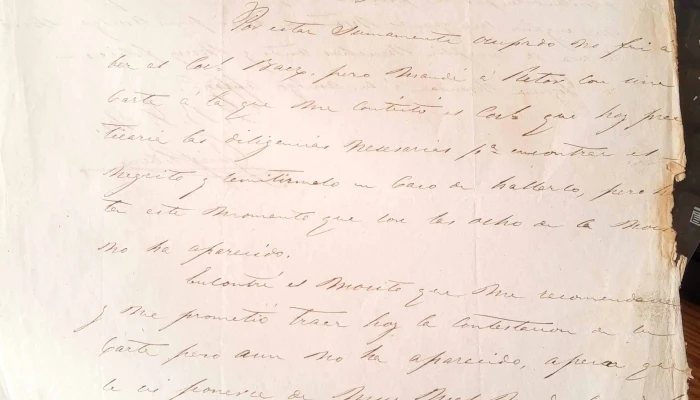 Por estar sumamente ocupado no fui a
ber al Corl. Baez, pero mandé á Retor con una
Carta á la que me contestó el Corl. que hoy prac
ticaria las diligencias necesarias pa. encontrar el
negrito y remitirmelo en caso de hallarlo, pero has
ta este momento que son las ocho de la noche
no ha aparecido.
Encontré el mosito que me recomendaron
y me prometió traer hoy la contestacion de la
Carta pero aun no ha aparecido, apesar que
le